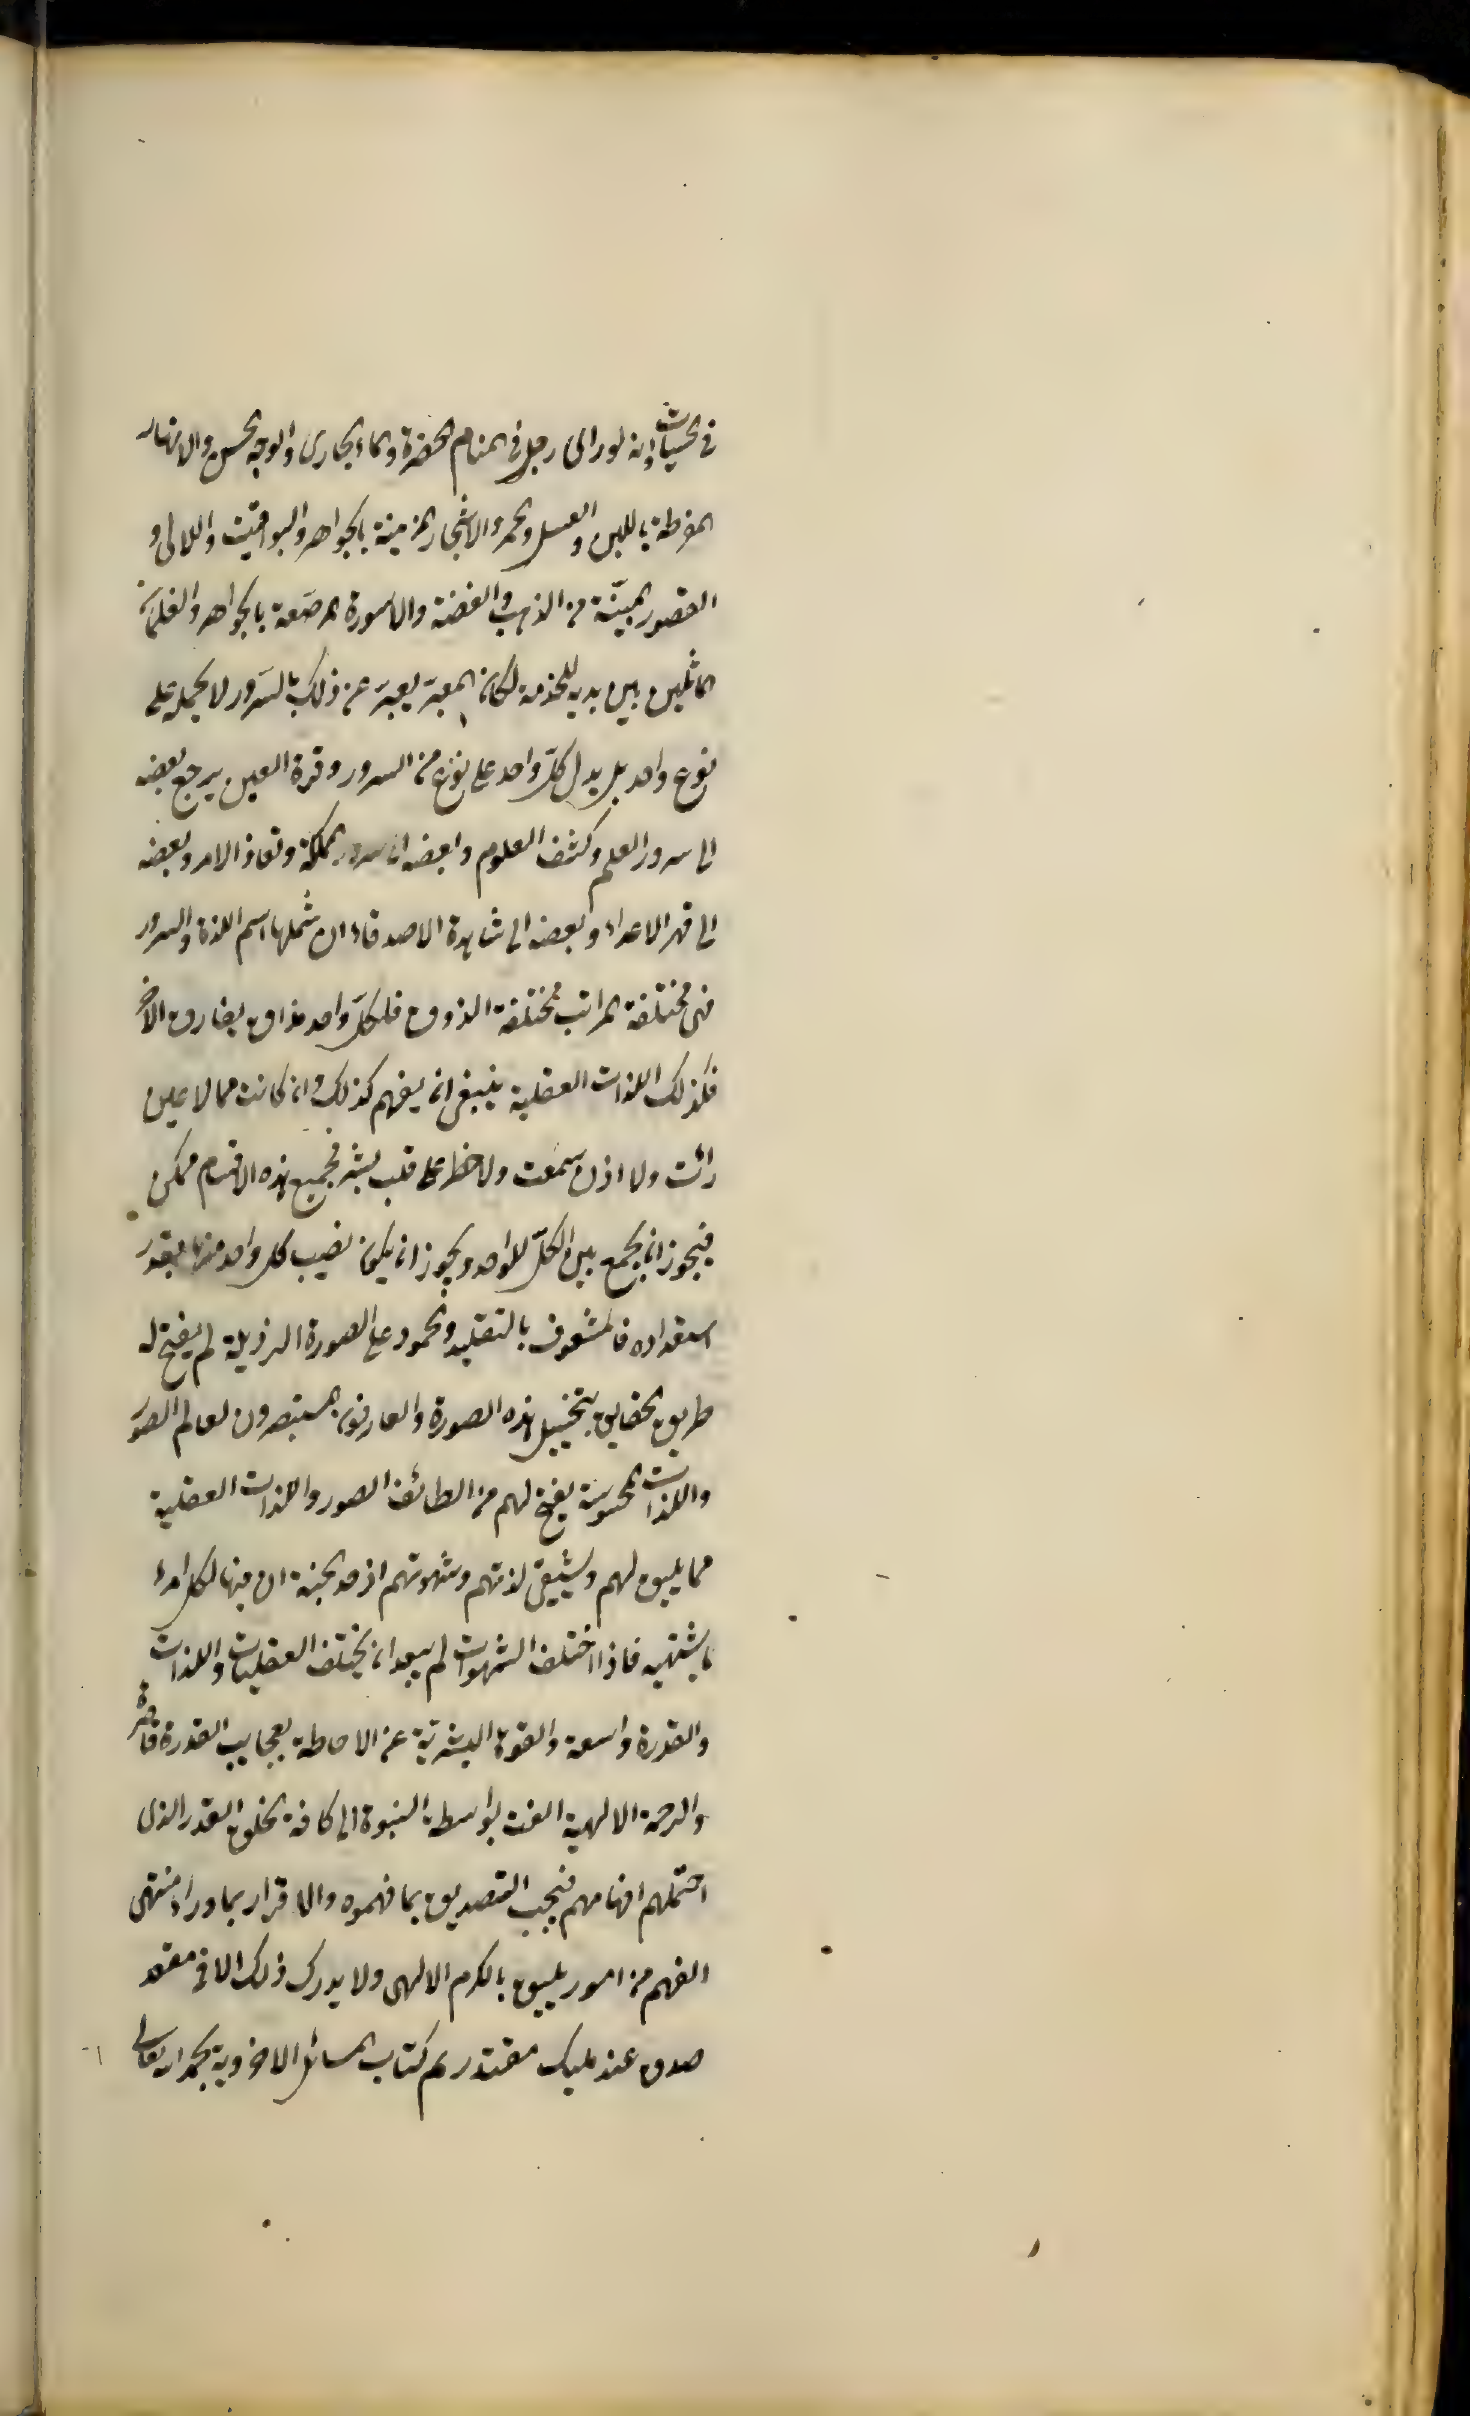 في الحسيات فانه لو راى رجل في المنام الخضرة والماء الجارى والوجه الحسن والانهار
المفرطة باللبن والعسل والخمر والاشجار المزينة بالجواهر واليواقيت واللالى و
القصور المبنية من الذهب والفضة والاسورة المرصعة بالجواهر والغلمان
الماثلين بين يديه للخدمة لكان المعبر يعبر عن ذلك بالسرور لا يحمله على
نوع واحد بل يدل كل واحد على نوع من السرور وقرة العين يرجع بعضه
الى سرور العلم وكشف العلوم وبعضه الى سرور المملكة ونفاذ الامر وبعضه
الى قهر الاعداء وبعضه الى مشاهدة الاصدقاء وان شملها اسم اللذة والسرور
فهى مختلفة المراتب مختلفة الذوق فلكل واحد مذاق يفارق الاخر
فكذلك اللذات العقلية ينبغى ان يفهم كذلك وان كانت مما لا عين
رأت ولا اذن سمعت ولا خطر على قلب بشر فجميع هذه الاقسام ممكن
فيجوز ان يجمع بين الكل للواحد ويجوز ان يكون نصيب كل واحد منها بقدر
استعداده فالمشعوف بالتقليد والجمود على الصورة الرذيلة لم يفتح له
طريق الحقايق بتخييل هذه الصورة والعارفون المستبصرون لعالم الصور
واللذات المحسوسة يفتح لهم من الطائف الصور واللذات العقلية
مما يليق لهم ويشفى لذتهم وشهوتهم اذ حد الجنة ان فيها لكل امرء
ما يشتهيه فاذا اختلف الشهوات لم يبعد ان يختلف العقليات واللذات
والقدرة واسعة والقوة البشرية عن الاحاطة بعجايب القدرة قاصرة
والرحمة الالهية القت بواسطة النبوة الى كافة الخلق القدر الذى
احتملهم افهامهم فيجب التصديق بما فهموه والاقرار بما وراء منتهى
الفهم من امور يليق بالكرم الالهى ولا يدرك ذلك الا فى مقعد
صدق عند مليك مقتدر تم كتاب المسائل الاخروية بحمد الله تعالى